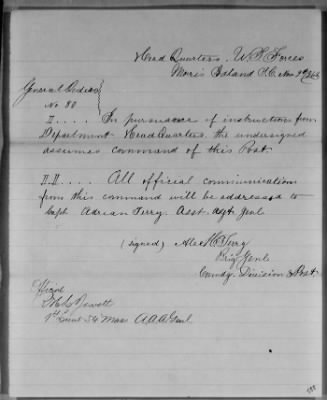 Head Quarters, U.S. Forces
Morris Island S.C. Nov 9th
General Orders
No 80
II.... In pursuance of instructions from
Department Head Quarters, the undersigned
assumes command of this Post
II.II.... All official communications
from this command will be addressed to
Capt Adrian Terry. Asst. Agt. Genl
(signed) Alfd H Terry
Brig Genl
Comdg. Division & Post
Official
Jewett
1st Lieut 54 Mass A.A.A. Genl